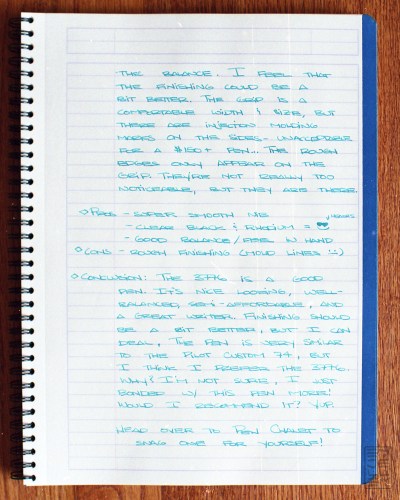 THE BALANCE. I FEEL THAT
THE FINISHING COULD BE A
BIT BETTER. THE GRIP IS A
COMFORTABLE WIDTH & SIZE, BUT
THERE ARE INJECTION MOLDING
MARKS ON THE SIDES - UNACCEPTABLE
FOR A $150+ PEN... THE ROUGH
EDGES ONLY APPEAR ON THE
GRIP. THEY'RE NOT REALLY TOO
NOTICEABLE, BUT THEY ARE THERE
◇ PROS - SUPER SMOOTH NIB
- CLEAR BLACK & RHODIUM = 
- GOOD BALANCE/FEEL IN HAND
◇ CONS - ROUGH FINISHING (MOLD LINES :-/)
◇ CONCLUSION: THE 3776 IS A GOOD
PEN. IT'S NICE LOOKING, WELL-
BALANCED, SEMI-AFFORDABLE, AND
A GREAT WRITER. FINISHING SHOULD
BE A BIT BETTER, BUT I CAN
DEAL. THE PEN IS VERY SIMILAR
TO THE PILOT CUSTOM 74, BUT
I THINK I PREFER THE 3776.
WHY? I'M NOT SURE, I JUST
BONDED W/ THIS PEN MORE!
WOULD I RECOMMEND IT? YUP.
HEAD OVER TO PEN CHALET TO
SNAG ONE FOR YOURSELF!